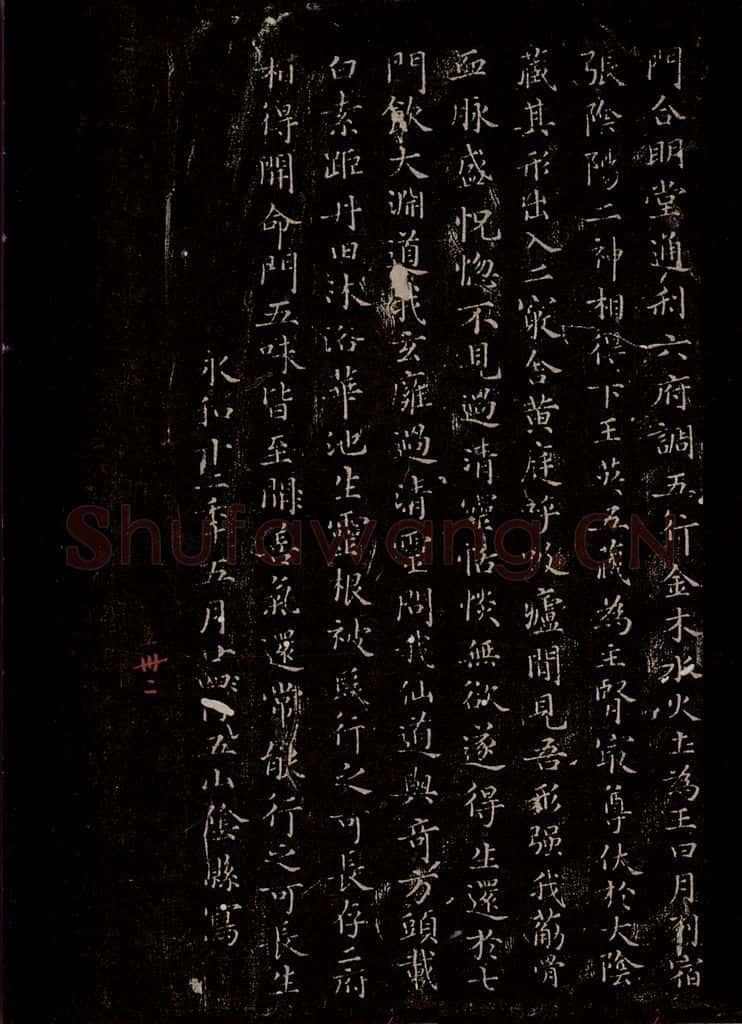 門合明堂通利六府調五行金木水火土為王日月列宿
張陰陽二神相得下王英五藏為主腎最尊伏於大陰
藏其形出入二竅舍黄庭呼吸廬間見吾形强我筋骨
血脉盛怳惚不見過清靈恬惔無欲遂得生還於七
門飲大淵道我玄雍過清靈問我仙道與奇方頭載
白素距丹田沐浴華池生靈根被髮行之可長存二府
相得開命門五味皆至開善氣還常能行之可長生
永和十二年五月日五山陰縣寫
卅二
Shufawang.CN